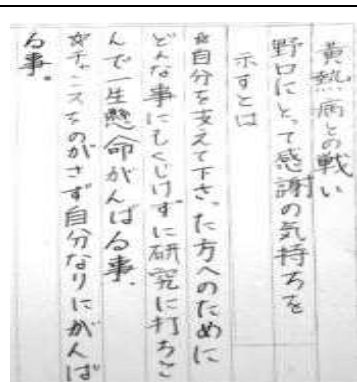 黄熱病との戦い
野口にとって感謝の気持ちを
示すとは
☆自分を支えて下さった方へのために
どんな事にもくじけずに研究に打ちこ
んで一生懸命がんばる事。
☆チャンスをのがさず自分なりにがんば
る事。